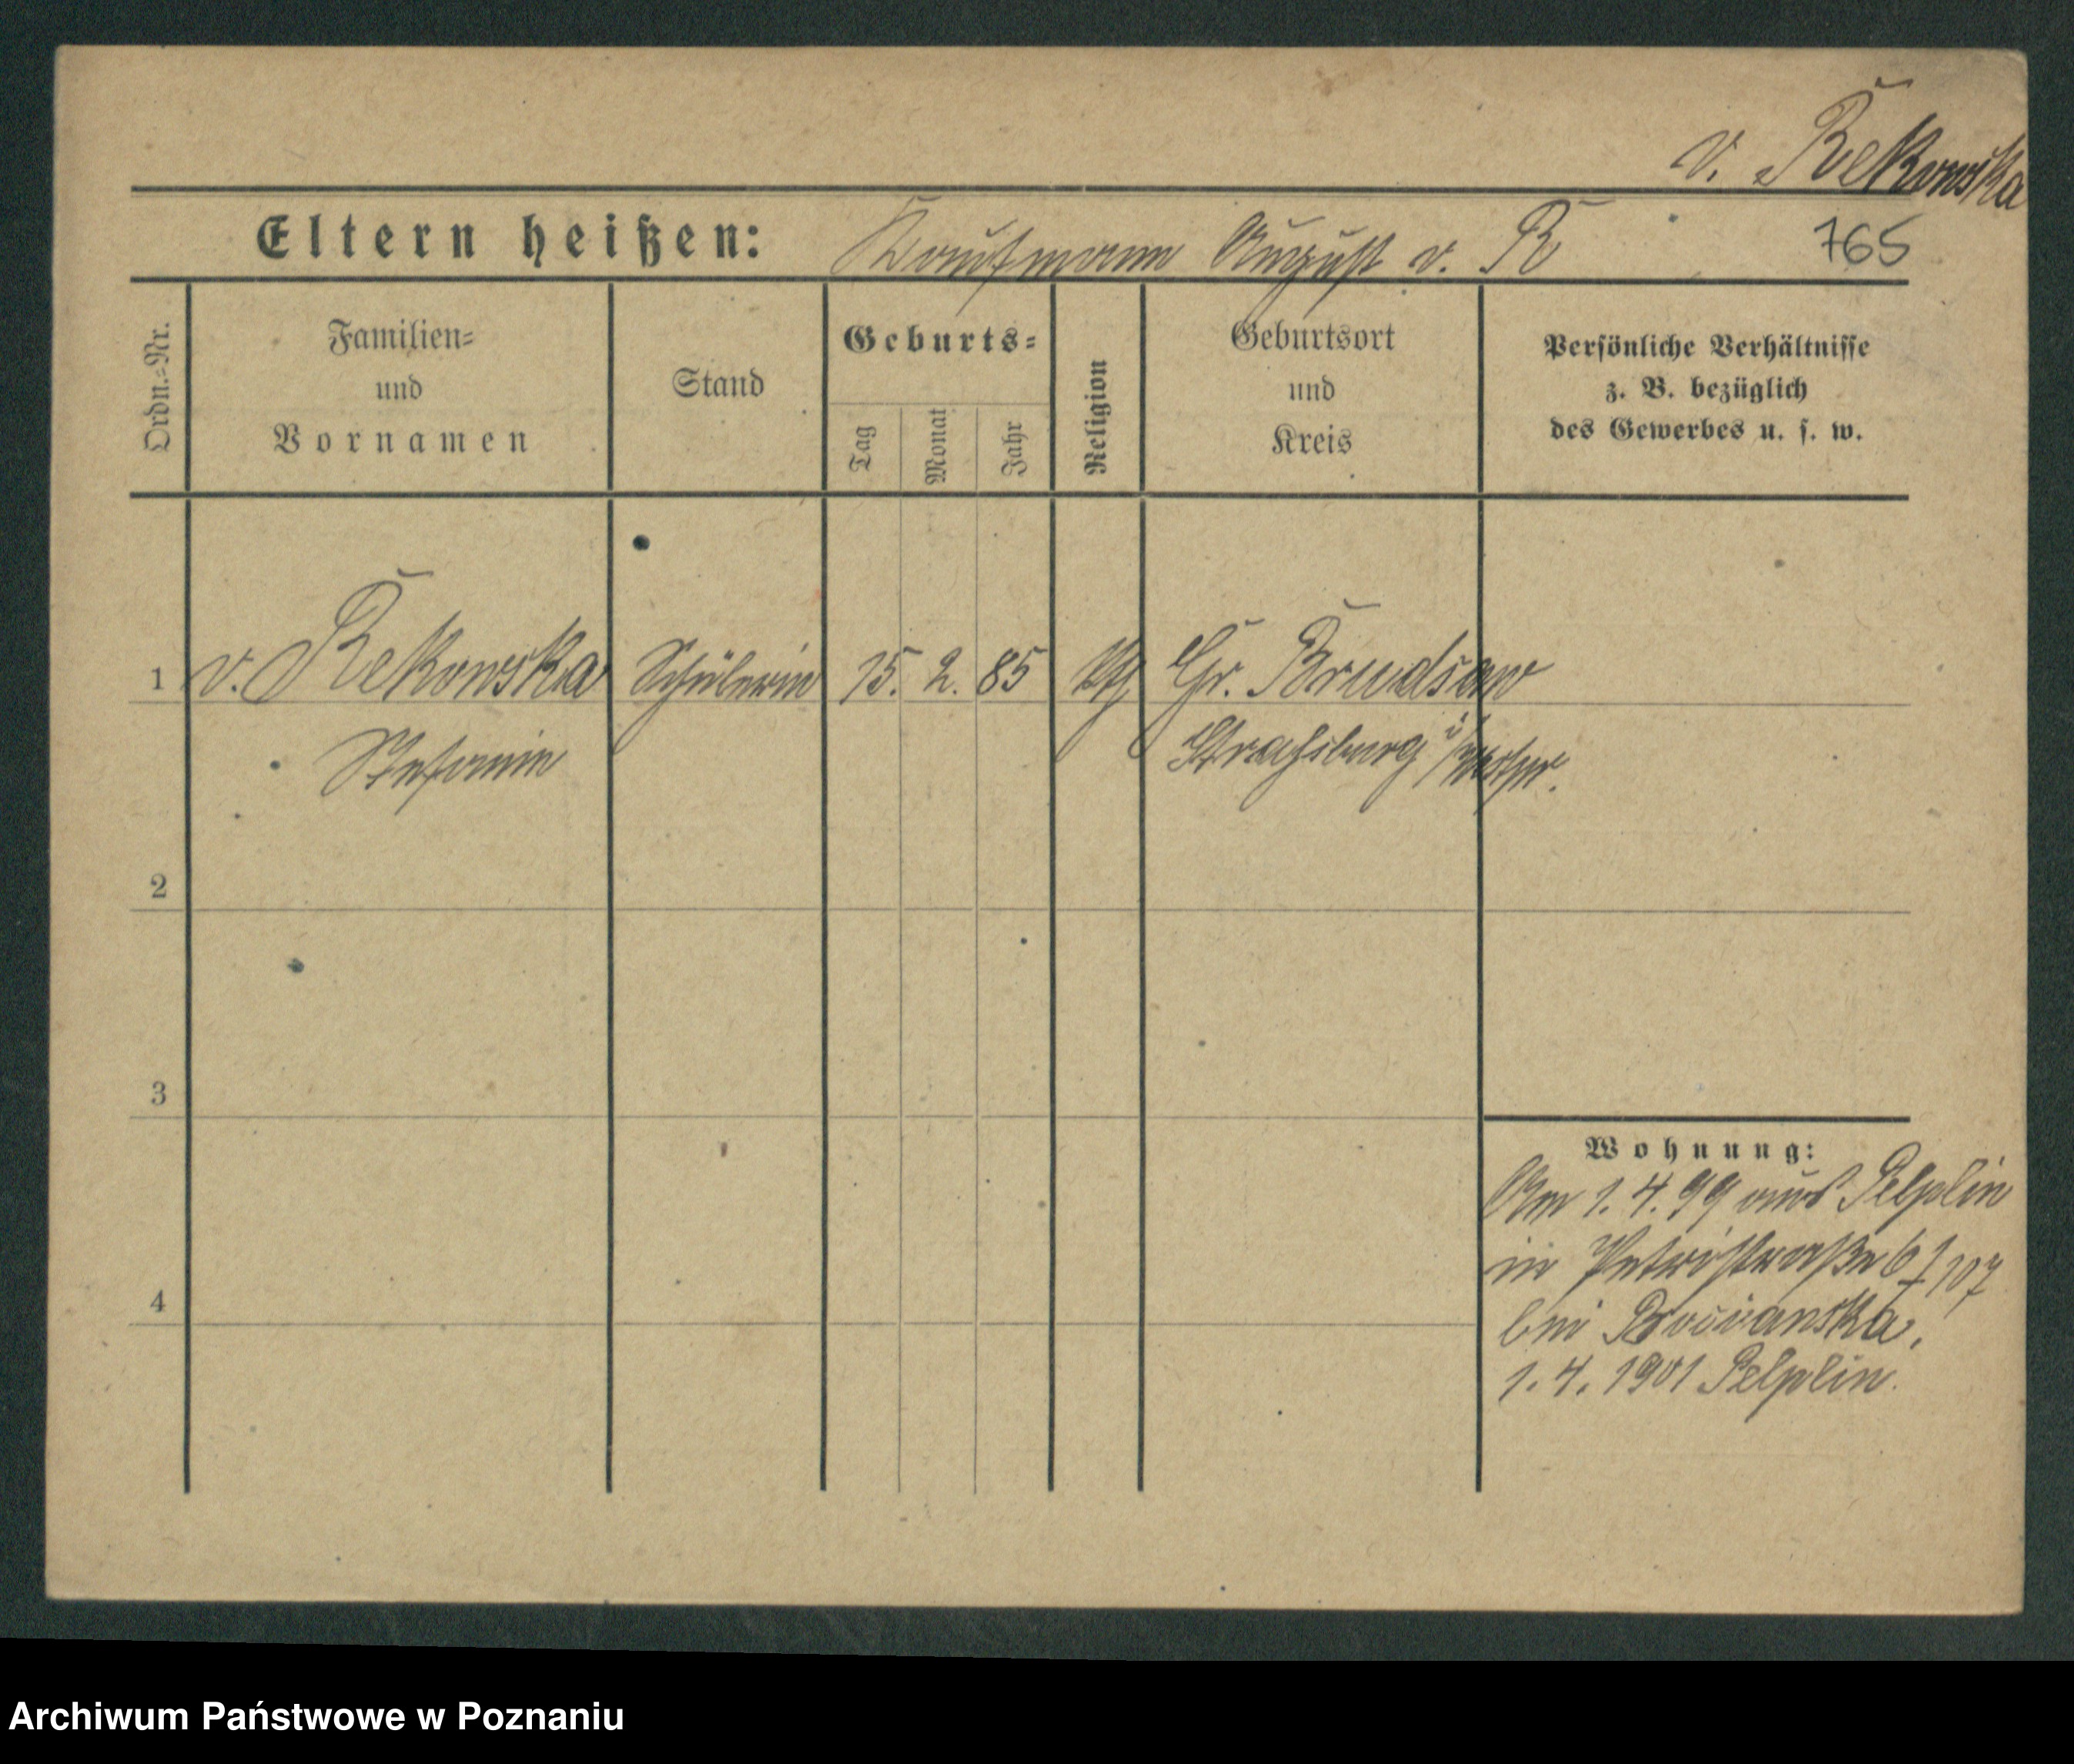 v. Rekowska
Eltern heißen: Kaufmann August v. R
765
Ordn.=Nr.
Familien=
und
Vornamen
Stand
Geburts=
Tag
Monat
Jahr
Religion
Geburtsort
und
Kreis
Persönliche Verhältnisse
z. B. bezüglich
des Gewerbes u. s. w.
1 v. Rekowska Schülerin 15. 2. 85 Gr. Brudsaw
Stefanie Straßburg i/Westpr.
2
3
4
Wohnung:
Am 1. 4. 99 aus Pelplin
in Petristraße 6
bei
1. 4. 1901 Pelplin.
Archiwum Państwowe w Poznaniu